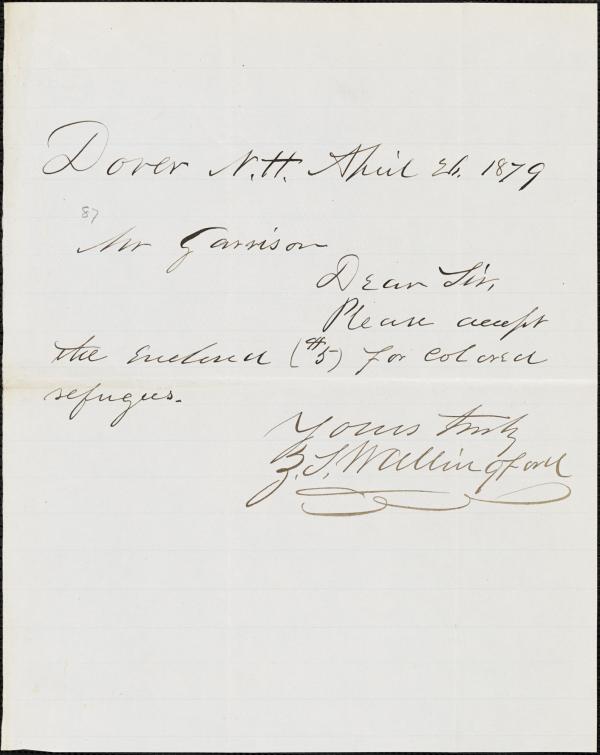 Dover N.H. April 26. 1879
87
Mr Garrison
Dear Sir,
Please accept
the enclosed ($5) for colored
refugees.
Yours truly
Z. S. Wallingford